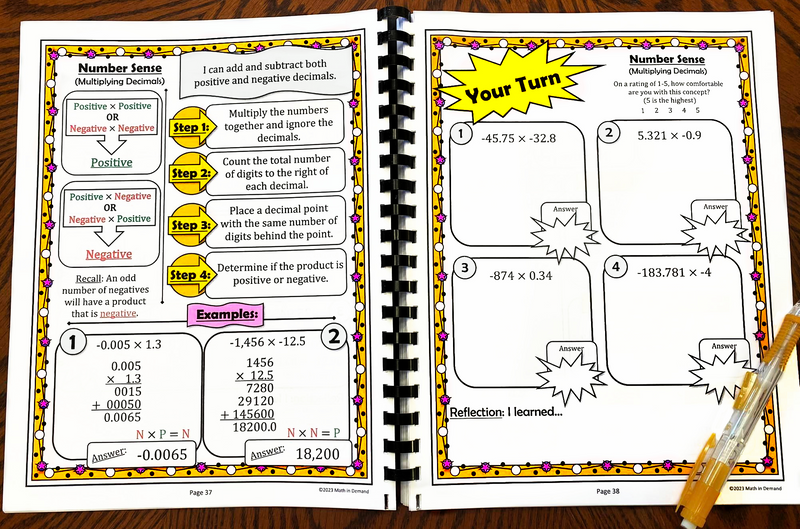 Number Sense
(Multiplying Decimals)
I can add and subtract both
positive and negative decimals.
Positive × Positive
OR
Negative × Negative
Positive
Positive × Negative
OR
Negative × Positive
Negative
Recall: An odd
number of negatives
will have a product
that is negative.
Step 1:
Multiply the numbers
together and ignore the
decimals.
Step 2:
Count the total number
of digits to the right of
each decimal.
Step 3:
Place a decimal point
with the same number of
digits behind the point.
Step 4:
Determine if the product is
positive or negative.
Examples:
1
-0.005 × 1.3
0.005
× 1.3
0015
+ 00050
0.0065
N × P = N
Answer: -0.0065
2
-1,456 × -12.5
1456
× 12.5
7280
29120
+ 145600
18200.0
N × N = P
Answer: 18,200
Page 37
©2023 Math in Demand
Your Turn
Number Sense
(Multiplying Decimals)
On a rating of 1-5, how comfortable
are you with this concept?
(5 is the highest)
1 2 3 4 5
1
-45.75 × -32.8
Answer
2
5.321 × -0.9
Answer
3
-874 × 0.34
Answer
4
-183.781 × -4
Answer
Reflection: I learned...
Page 38
©2023 Math in Demand